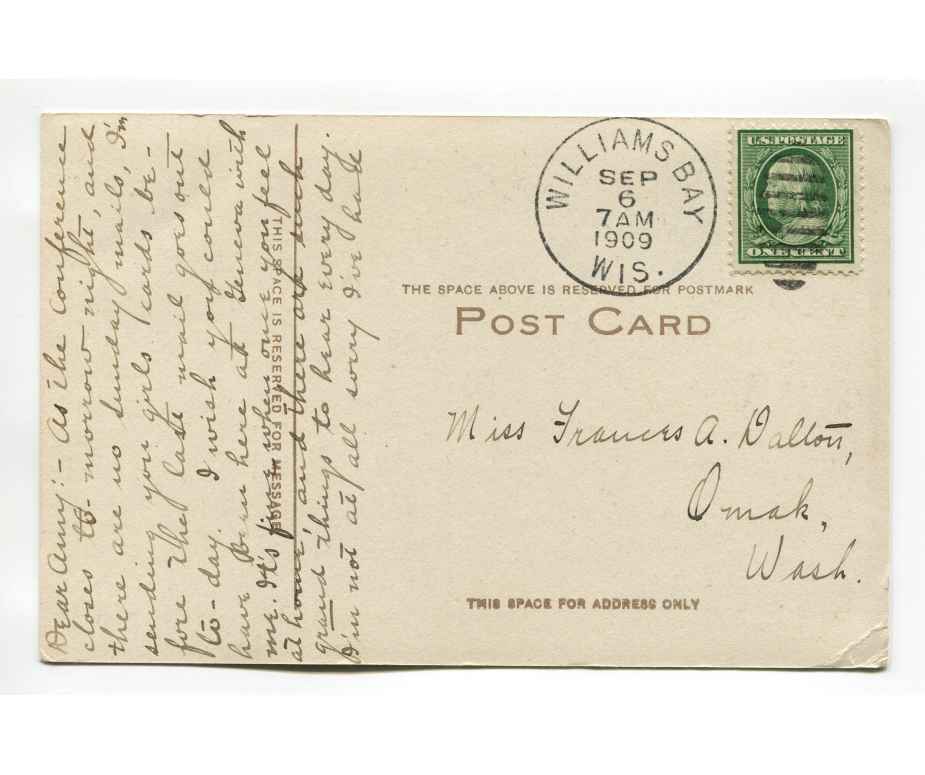 Dear Amy:- As the Conference
closes to-morrow night, and
there are no Sunday mails, I'm
sending you girls cards be-
fore the last mail goes out
to-day. I wish you could
have been here at Geneva with
me. It's fine when once you feel
at home and there are such
grand things to hear every day.
I'm not at all sorry I've had
THIS SPACE IS RESERVED FOR MESSAGE
WILLIAMS BAY
SEP
6
7 AM
1909
WIS.
U.S. POSTAGE
ONE CENT
THE SPACE ABOVE IS RESERVED FOR POSTMARK
POST CARD
Miss Frances A. Dalton,
Omak,
Wash.
THIS SPACE FOR ADDRESS ONLY